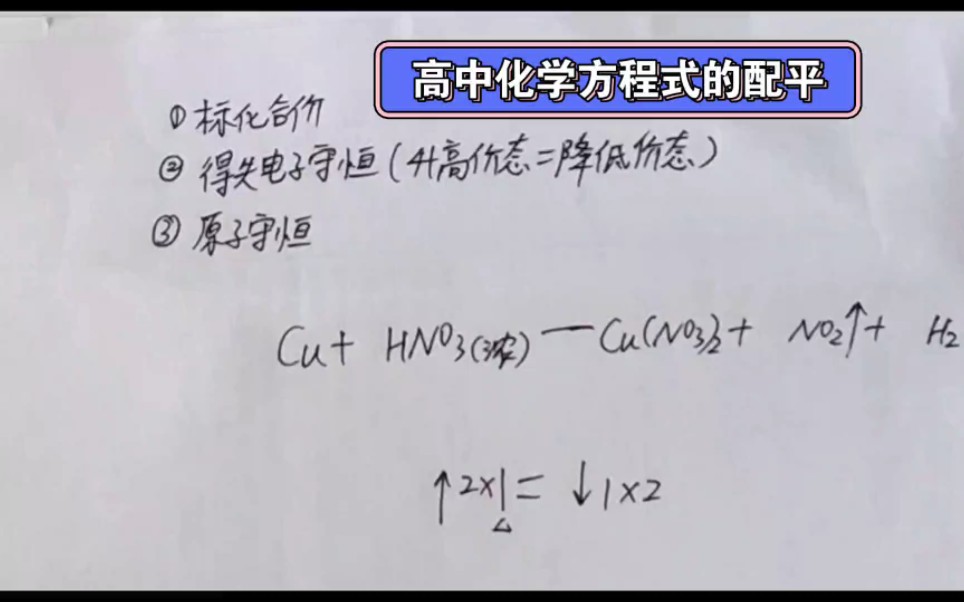 高中化学方程式的配平
① 标化合价
② 得失电子守恒(升高价态=降低价态)
③ 原子守恒
Cu+ HNO3(浓) — Cu(NO3)2+ NO2↑+ H2
↑2×1= ↓1×2
△